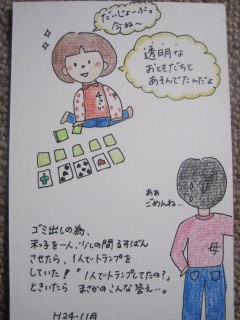 だいじょーぶ。
今ね〜
透明な
おともだちと
あそんでたんだよ
4さい
あぁ
ごめんね…
母
ゴミ出しの為、
末っ子を一人、少しの間るすばん
させたら、1人でトランプを
していた!「1人でトランプしてたの?」
ときいたら まさかのこんな答え…。
H24.11月